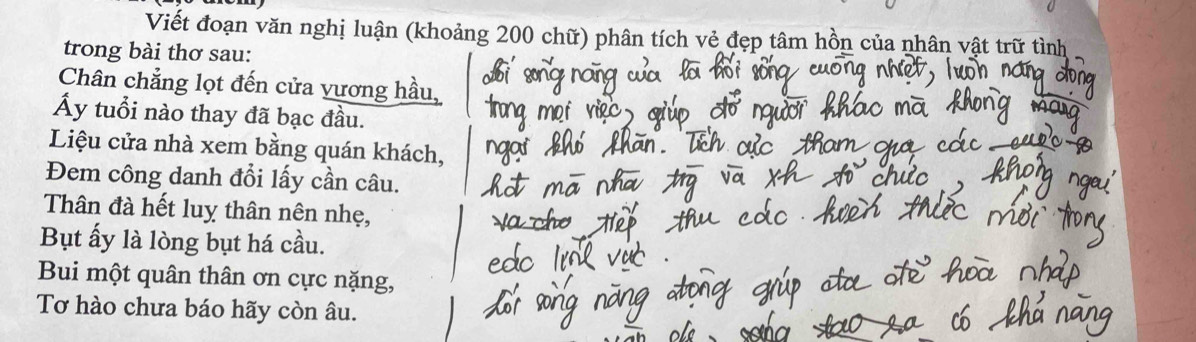 Viết đoạn văn nghị luận (khoảng 200 chữ) phân tích vẻ đẹp tâm hồn của nhân vật trữ tình
trong bài thơ sau:
Chân chẳng lọt đến cửa vương hầu,
Ấy tuổi nào thay đã bạc đầu.
Liệu cửa nhà xem bằng quán khách,
Đem công danh đổi lấy cần câu.
Thân đà hết luỵ thân nên nhẹ,
Bụt ấy là lòng bụt há cầu.
Bui một quân thân ơn cực nặng,
Tơ hào chưa báo hãy còn âu.
lối sống năng của là lối sống cuồng nhiệt, luôn năng động
trong mọi việc, giúp đỡ người khác mà không mang
ngại khó khăn. Tích cực tham gia các cuộc
hđ mà nhà trg và xh tổ chức, không ngại
và cho tiếp thu các kiến thức mới trong
các lĩnh vực.
lối sống năng động giúp ta dễ hoà nhập
sống tạo ra có khả năng